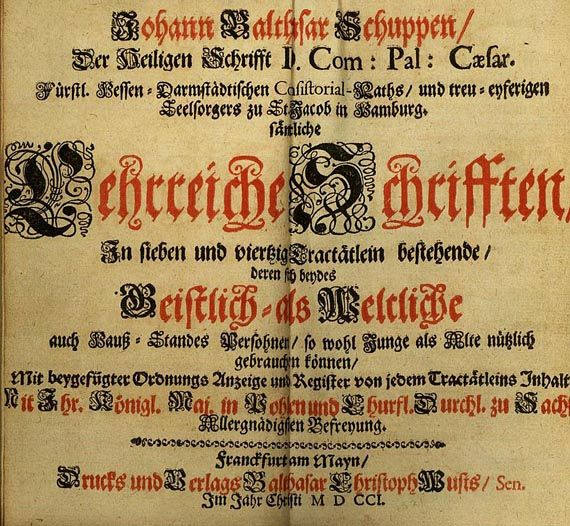 Johann Balthsar Schuppen/
Der Heiligen Schrifft D. Com: Pal: Cæsar.
Fürstl. Hessen-Darmstädtischen Cosistorial-Raths/ und treu-eyferigen
Seelsorgers zu St Jacob in Hamburg.
sämtliche
Lehrreiche Schrifften,
In sieben und viertzig Tractätlein bestehende/
deren sich beydes
Geistlich-als Weltliche
auch Hauß-Standes Persohnen/ so wohl Junge als Alte nützlich
gebrauchen können/
Mit beygefügter Ordnungs Anzeige und Register von jedem Tractätleins Inhalt
Mit Ihr. Königl. Maj. in Pohlen und Churfl. Durchl. zu Sachs
Allergnädigsten Befreyung.
Franckfurt am Mayn/
Drucks und Verlags Balthasar Christoph Wusts/ Sen.
Im Jahr Christi M D CCI.